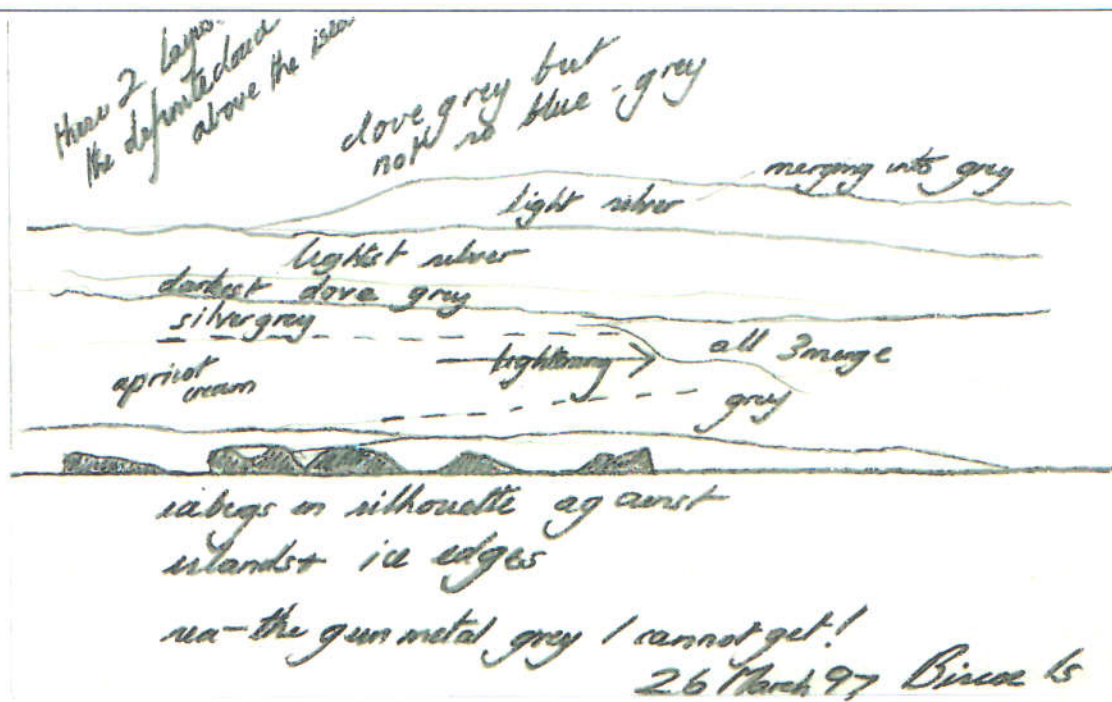 these 2 layers.
the definite cloud
above the islea
dove grey but
not so blue-grey
merging into grey
light silver
lightest silver
darkest dove grey
silvergrey
all 3 merge
lightening
apricot
cream
grey
icebegs in silhouette against
islands+ ice edges
sea-the gun metal grey I cannot get!
26 March 97 Biscoe Is